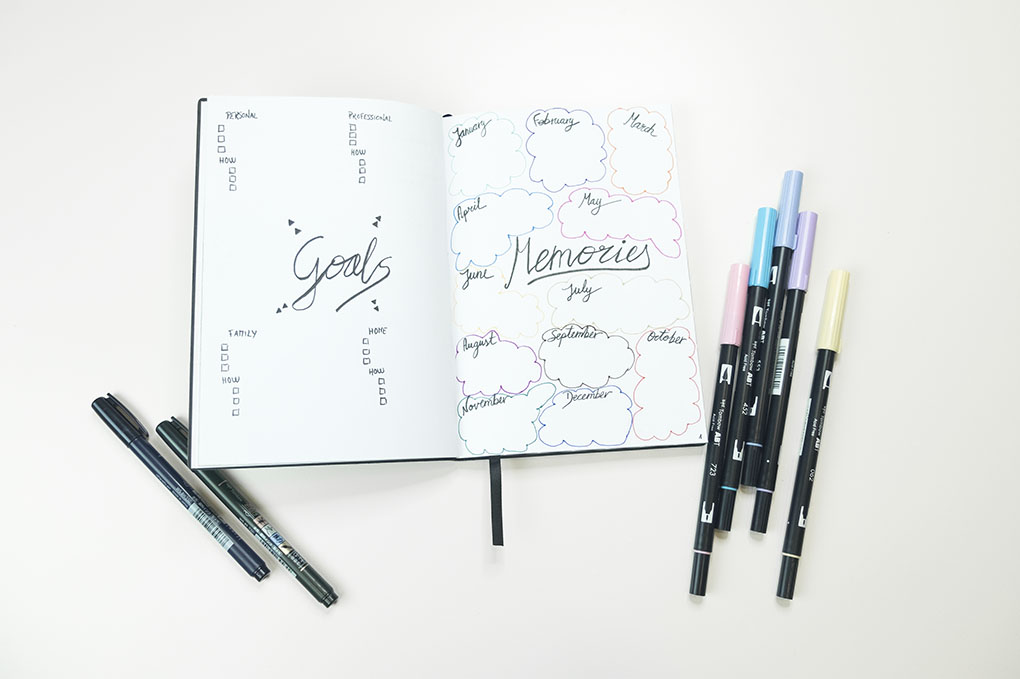 PERSONAL
PROFESSIONAL
HOW
HOW
Goals
FAMILY
HOME
HOW
HOW
January
February
March
April
May
Memories
June
July
August
September
October
November
December
Tombow ABT
723
Tombow ABT
452
ABT
553
Tombow ABT
062